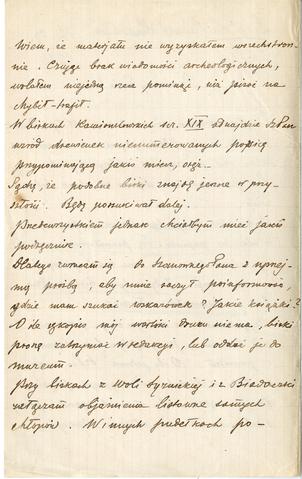 Wiem, że materjału nie wyzyskałem wszechstron-
nie. Czując brak wiadomości archeologicznych,
wolałem niejedną rzecz pominąć, niż pisać na
chybił-trafił.
W biskach str. XIX znajdzie Sz. Pan
wśród nienumerowanych
przypominającą jakiś miecz,
Sądzę, że podobne biski znajdę jeszcze w przy-
szłości. Będę poszukiwał dalej.
Przedewszystkiem jednak chciałbym mieć jakiś
podręcznik.
Dlatego zwracam się do Szanownego Pana z uprzej-
mą prośbą, aby mnie raczył poinformować,
gdzie mam szukać wskazówek? Jakie książki?
O ile rękopis mój wartości druku niema, biski
proszę zatrzymać w redakcji, lub oddać je do
muzeum.
Przy biskach z Woli i z Biadaczki
załączam objaśnienia listowne samych
chłopów. W innych pudełkach po-